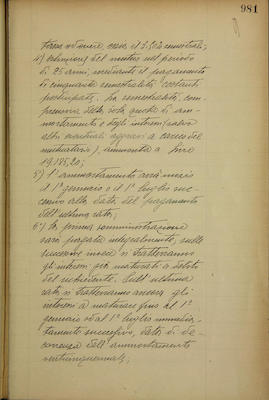 981
4) estinzione del mutuo nel periodo
di 25 anni, mediante il pagamento
di cinquanta semestralità costanti
posticipate. La semestralità, com-
prensiva della sola quota di am-
mortamento e degli interessi (salvo
altri eventuali aggravi a carico del
mutuatario) ammonta a lire
19.185,20;
5) l'ammortamento avrà inizio
il 1° gennaio o il 1° luglio suc-
cessivo alla data del pagamento
dell'ultima rata;
6) la prima somministrazione
sarà pagata integralmente, sulle
successive invece si tratteranno
gli interessi già maturati a debito
del richiedente. Sull'ultima
rata si tratteranno ancora gli
interessi a maturare fino al 1°
gennaio od al 1° luglio immedia-
tamente successivo, data di de-
correnza dell'ammortamento
venticinquennale;